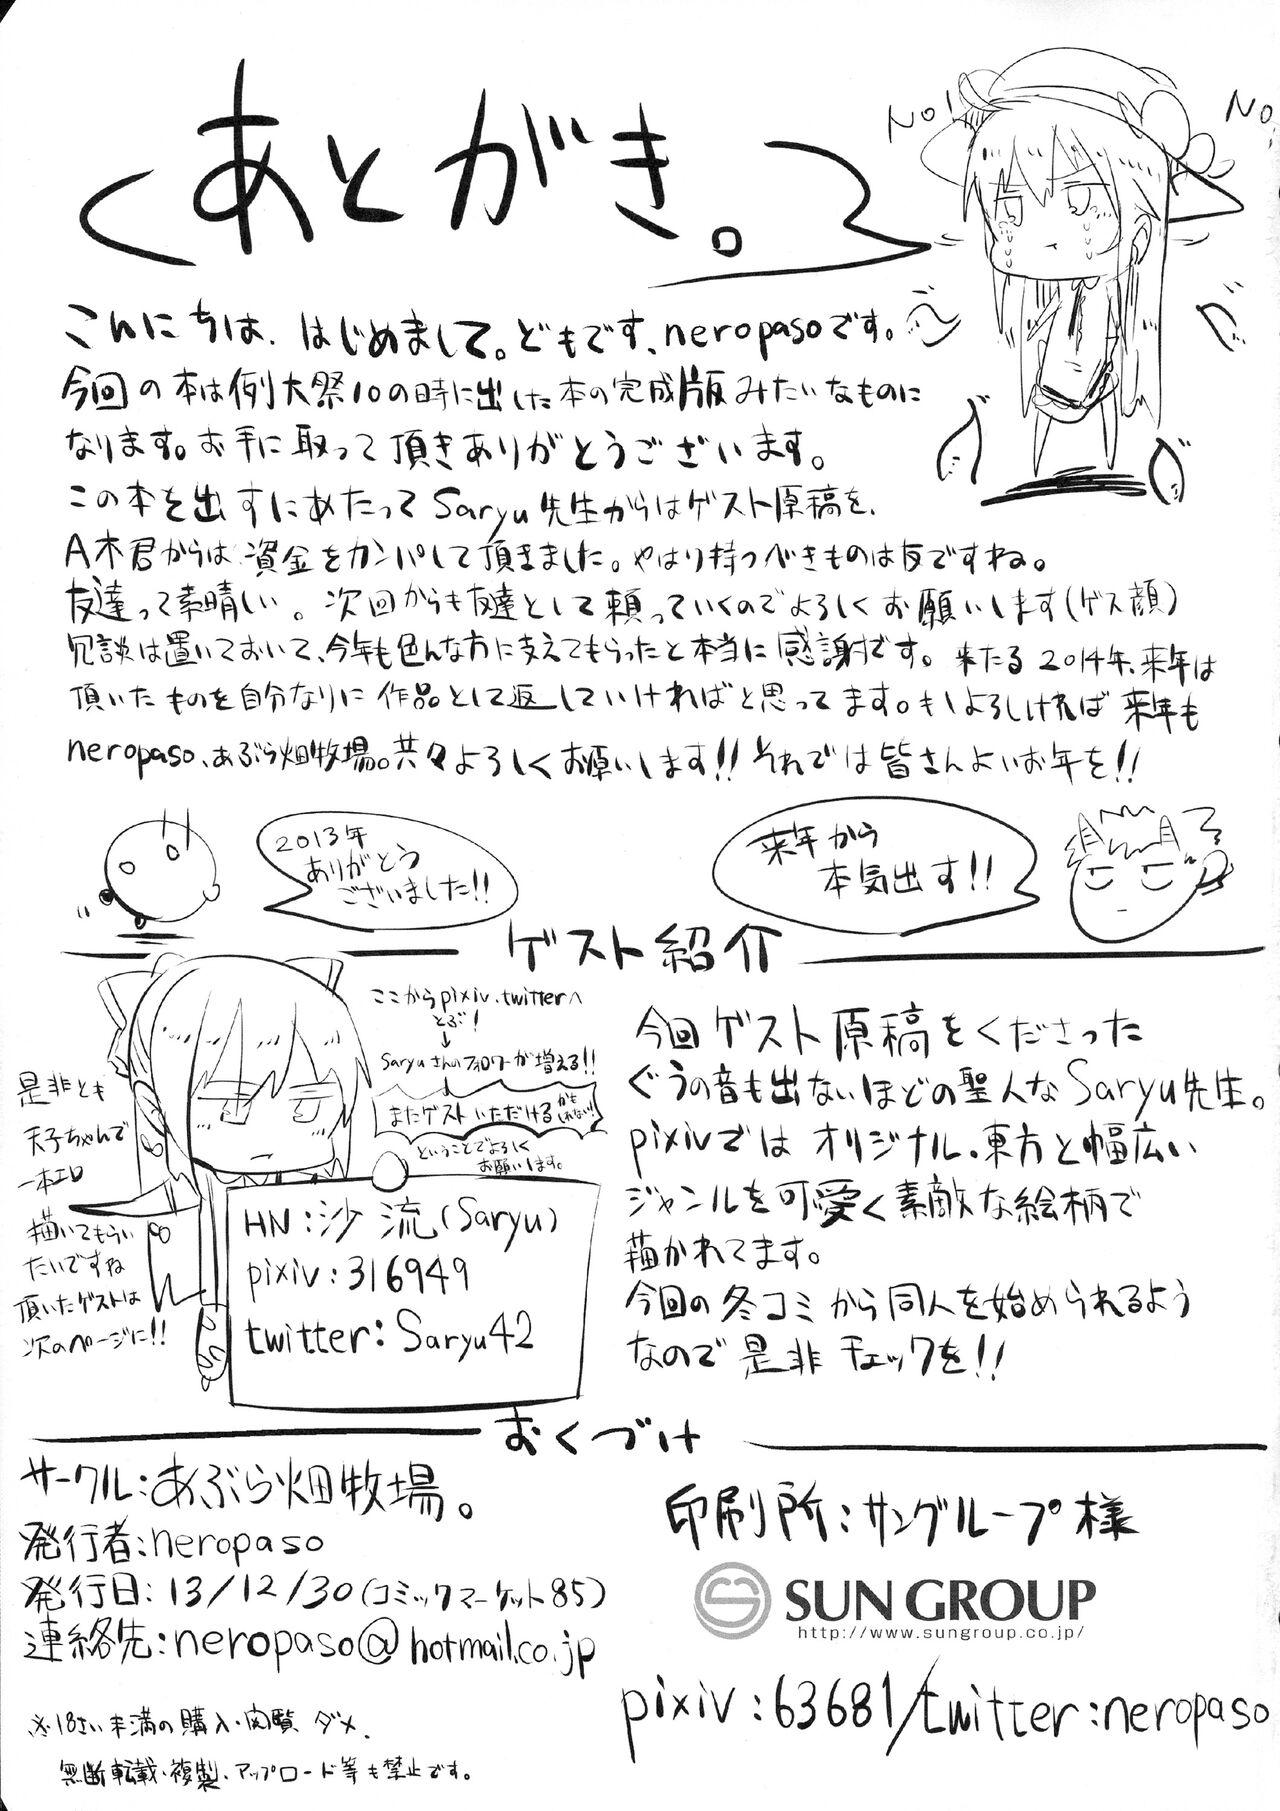 あとがき。
No!
No
こんにちは、はじめまして。どもです、neropasoです。
今回の本は例大祭10の時に出した本の完成版みたいなものに
なります。お手に取って頂きありがとうございます。
この本を出すにあたってSaryu先生からはゲスト原稿を、
A木君からは資金をカンパして頂きました。やはり持つべきものは友ですね。
友達って素晴しい。次回からも友達として頼っていくのでよろしくお願いします(ゲス顔)
冗談は置いておいて、今年も色んな方に支えてもらったと本当に感謝です。来たる2014年、来年は
頂いたものを自分なりに作品として返していければと思ってます。もしよろしければ来年も
neropaso、あぶら畑牧場。共々よろしくお願いします!!それでは皆さんよいお年を!!
2013年
ありがとう
ございました!!
来年から
本気出す!!
ゲスト紹介
ここからpixiv、twitterへ
とぶ!
↓
Saryuさんのフォロワーが増える!!
またゲストいただけるかもしれない!!
ということでよろしく
お願いします。
是非とも
天子ちゃんで
一本エロ
描いてもらい
たいですね
頂いたゲストは
次のページに!!
HN:沙流(Saryu)
pixiv:316949
twitter:Saryu42
今回ゲスト原稿をくださった
ぐうの音も出ないほどの聖人なSaryu先生。
pixivではオリジナル、東方と幅広い
ジャンルを可愛く素敵な絵柄で
描かれてます。
今回の冬コミから同人を始められるよう
なので是非チェックを!!
おくづけ
サークル:あぶら畑牧場。
発行者:neropaso
発行日:13/12/30(コミックマーケット85)
連絡先:neropaso@hotmail.co.jp
※18さい未満の購入・閲覧ダメ、
無断転載・複製、アップロード等も禁止です。
印刷所:サングループ様
SUN GROUP
http://www.sungroup.co.jp/
pixiv:63681/twitter:neropaso